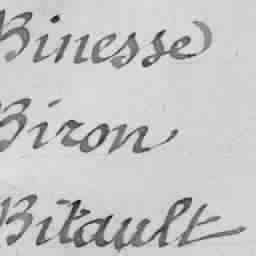 Binesse
Biron
Bitault